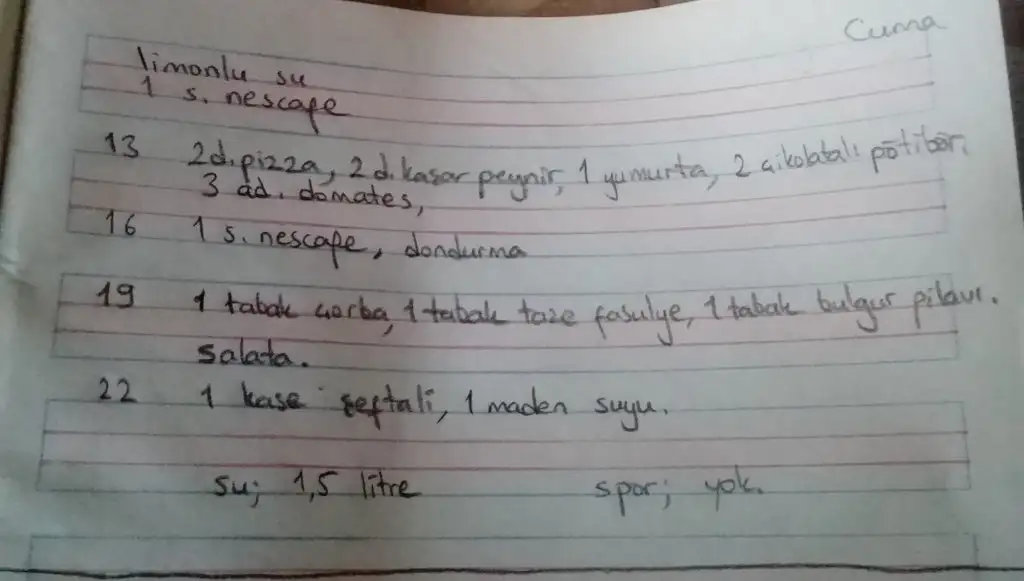 Cuma
limonlu su
1 s. nescafe
13 2d.pizza, 2 d. kaşar peynir, 1 yumurta, 2 çikolatalı pötibör,
3 ad. domates,
16 1 s. nescafe, dondurma
19 1 tabak çorba, 1 tabak taze fasulye, 1 tabak bulgur pilavı.
salata.
22 1 kase şeftali, 1 maden suyu.
su; 1,5 litre spor; yok.